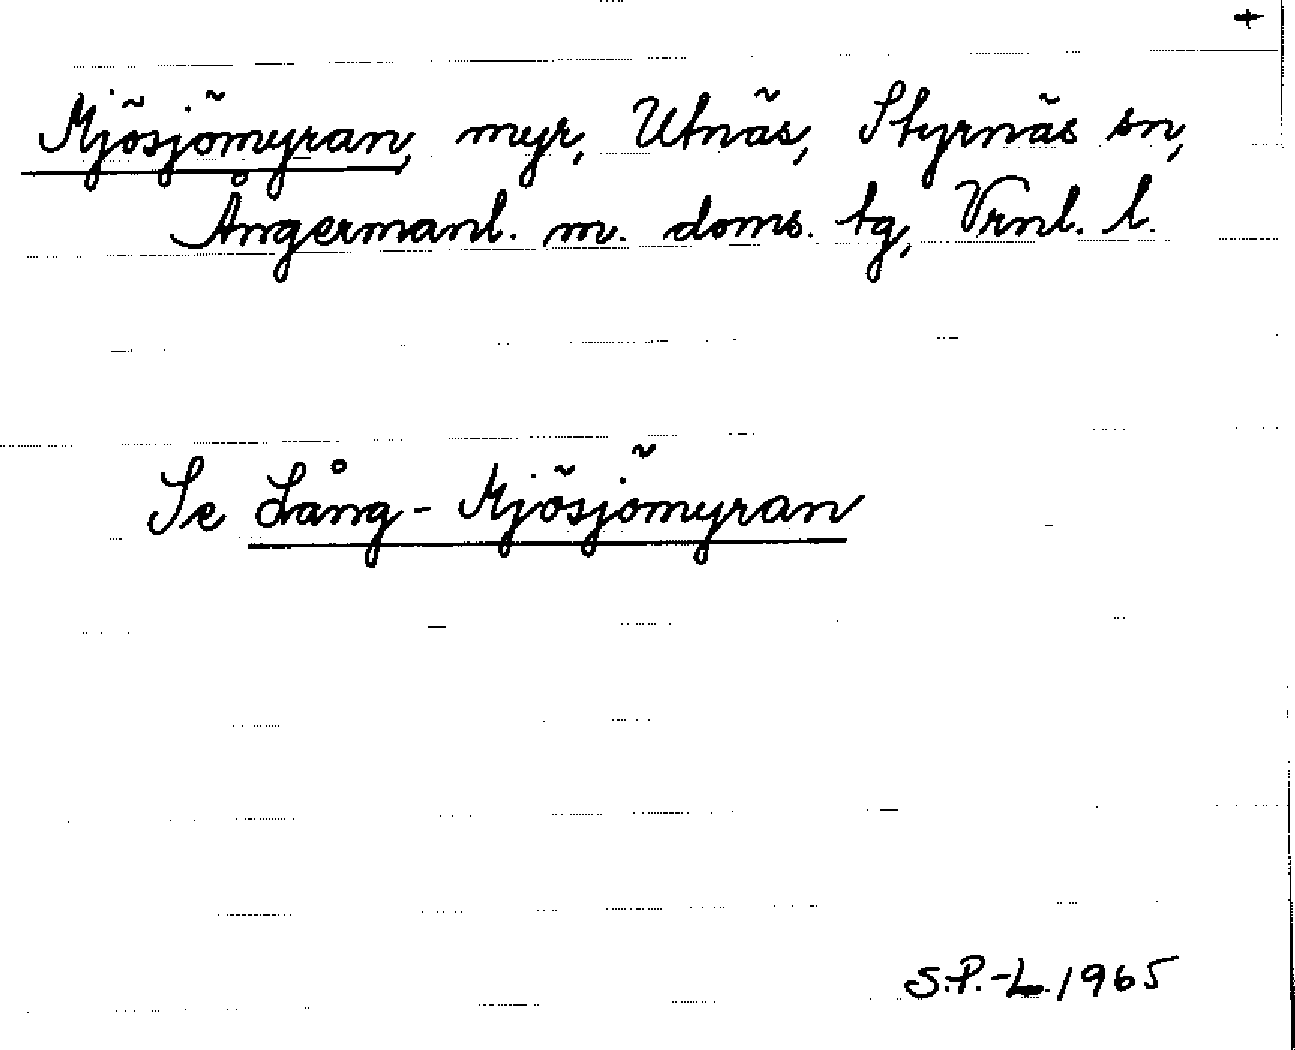 +
Mjösjömyran, myr, Utnäs, Styrnäs sn,
Ångermanl. m. doms. tg, Vrnl. l.
Se Lång-Mjösjömyran
S.P.-L. 1965